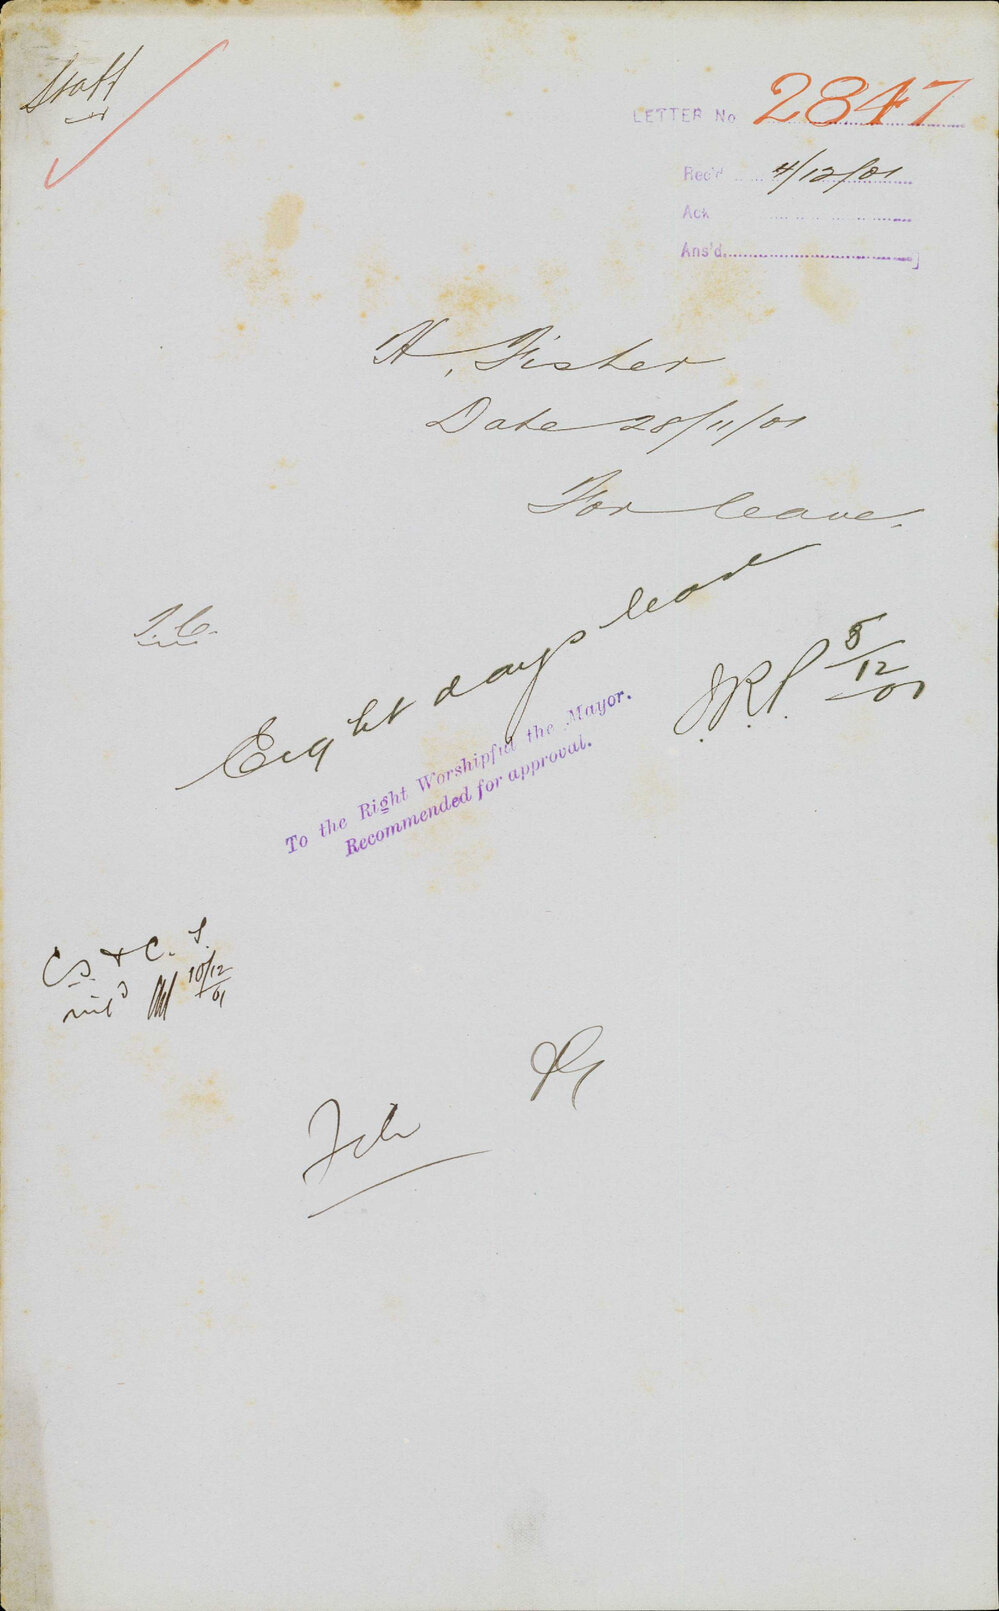 Staff
LETTER No 2847
Rec'd 4/12/01
Ack
Ans'd
H. Fisher
Date 28/11/01
For leave.
T.C.
Eight days leave
5/12/01
To the Right Worshipful the Mayor.
Recommended for approval.
C.S. & C. S.
10/12/01